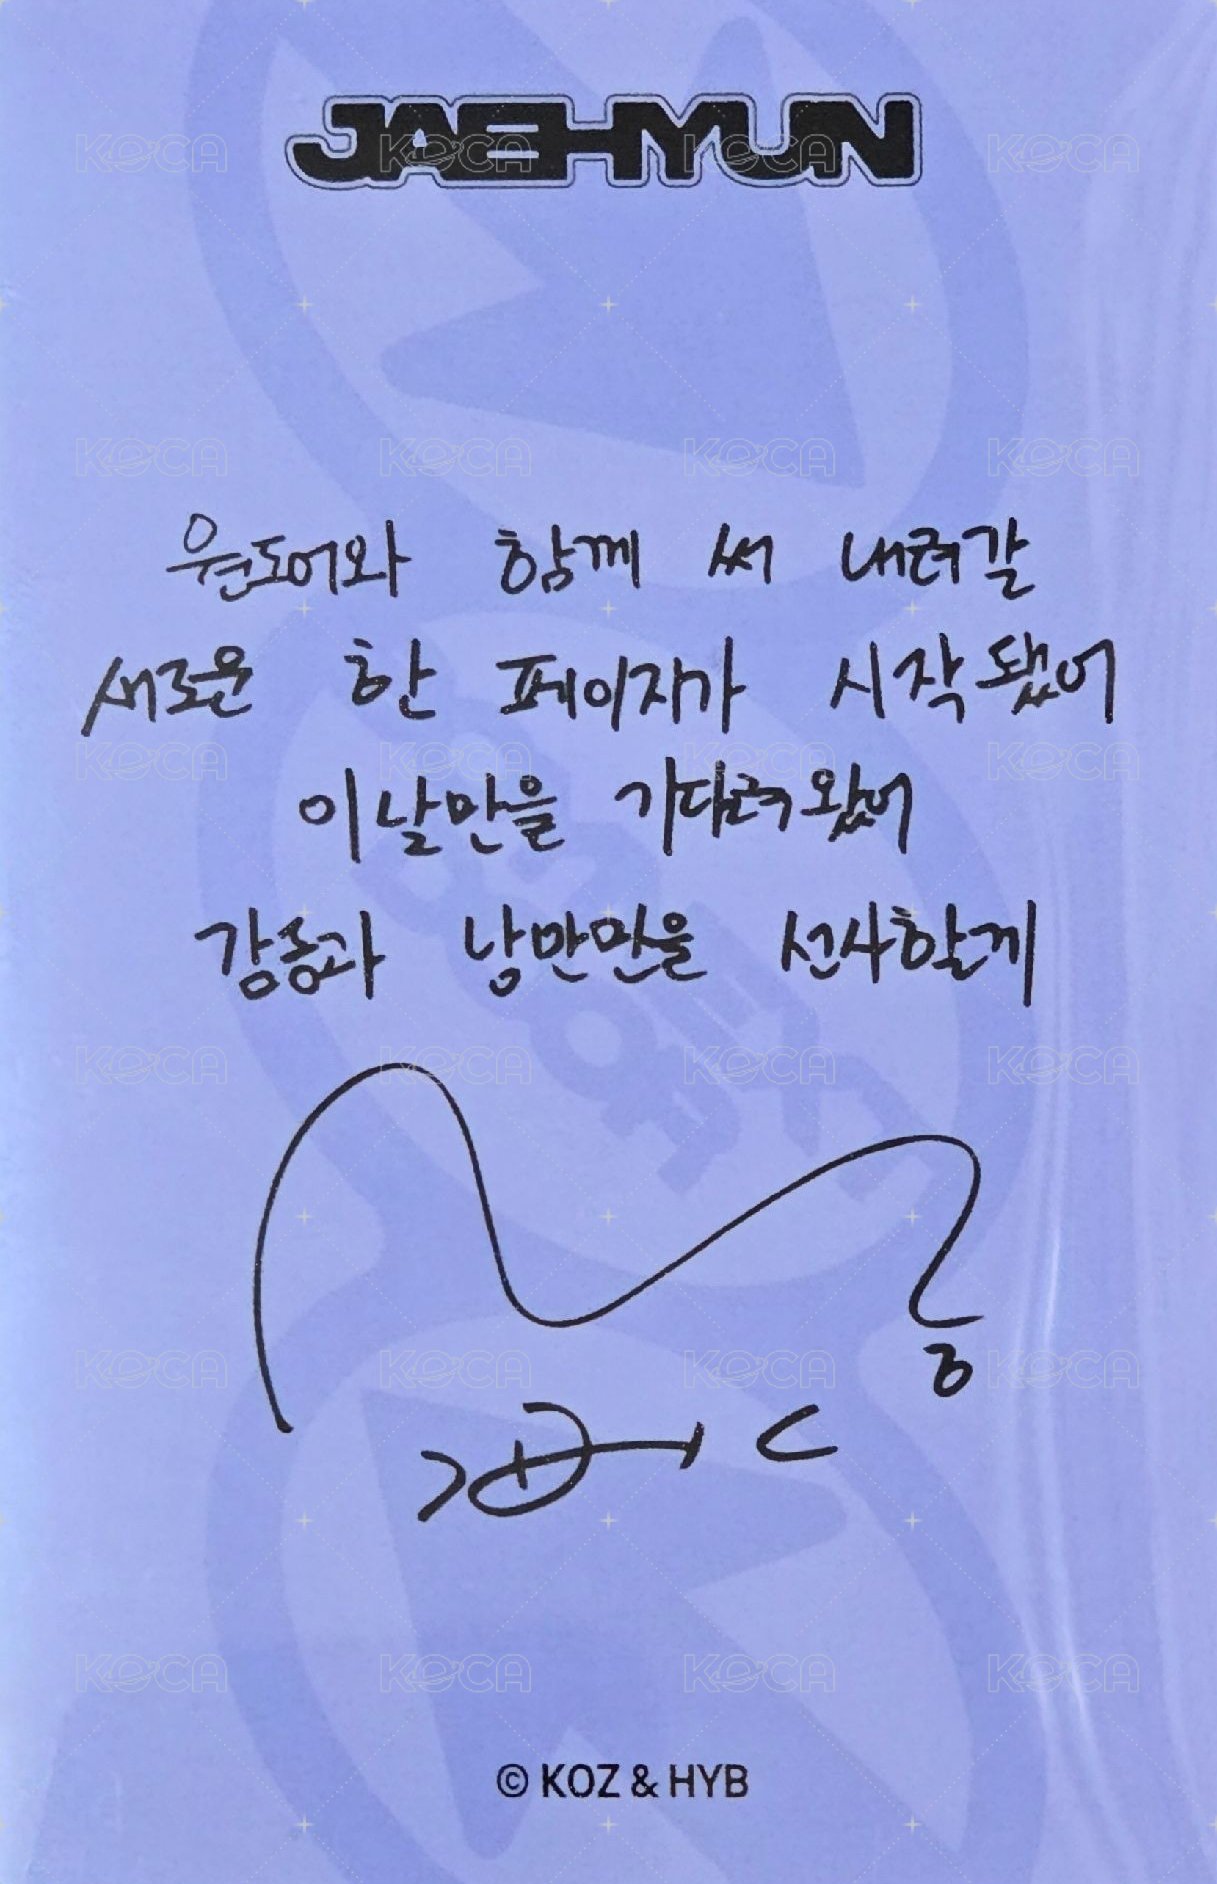 JAEHYUN
원도어와 함께 써 내려갈
새로운 한 페이지가 시작됐어
이 날만을 기다려왔어
감동과 낭만만을 선사할게
© KOZ & HYB
KOCA